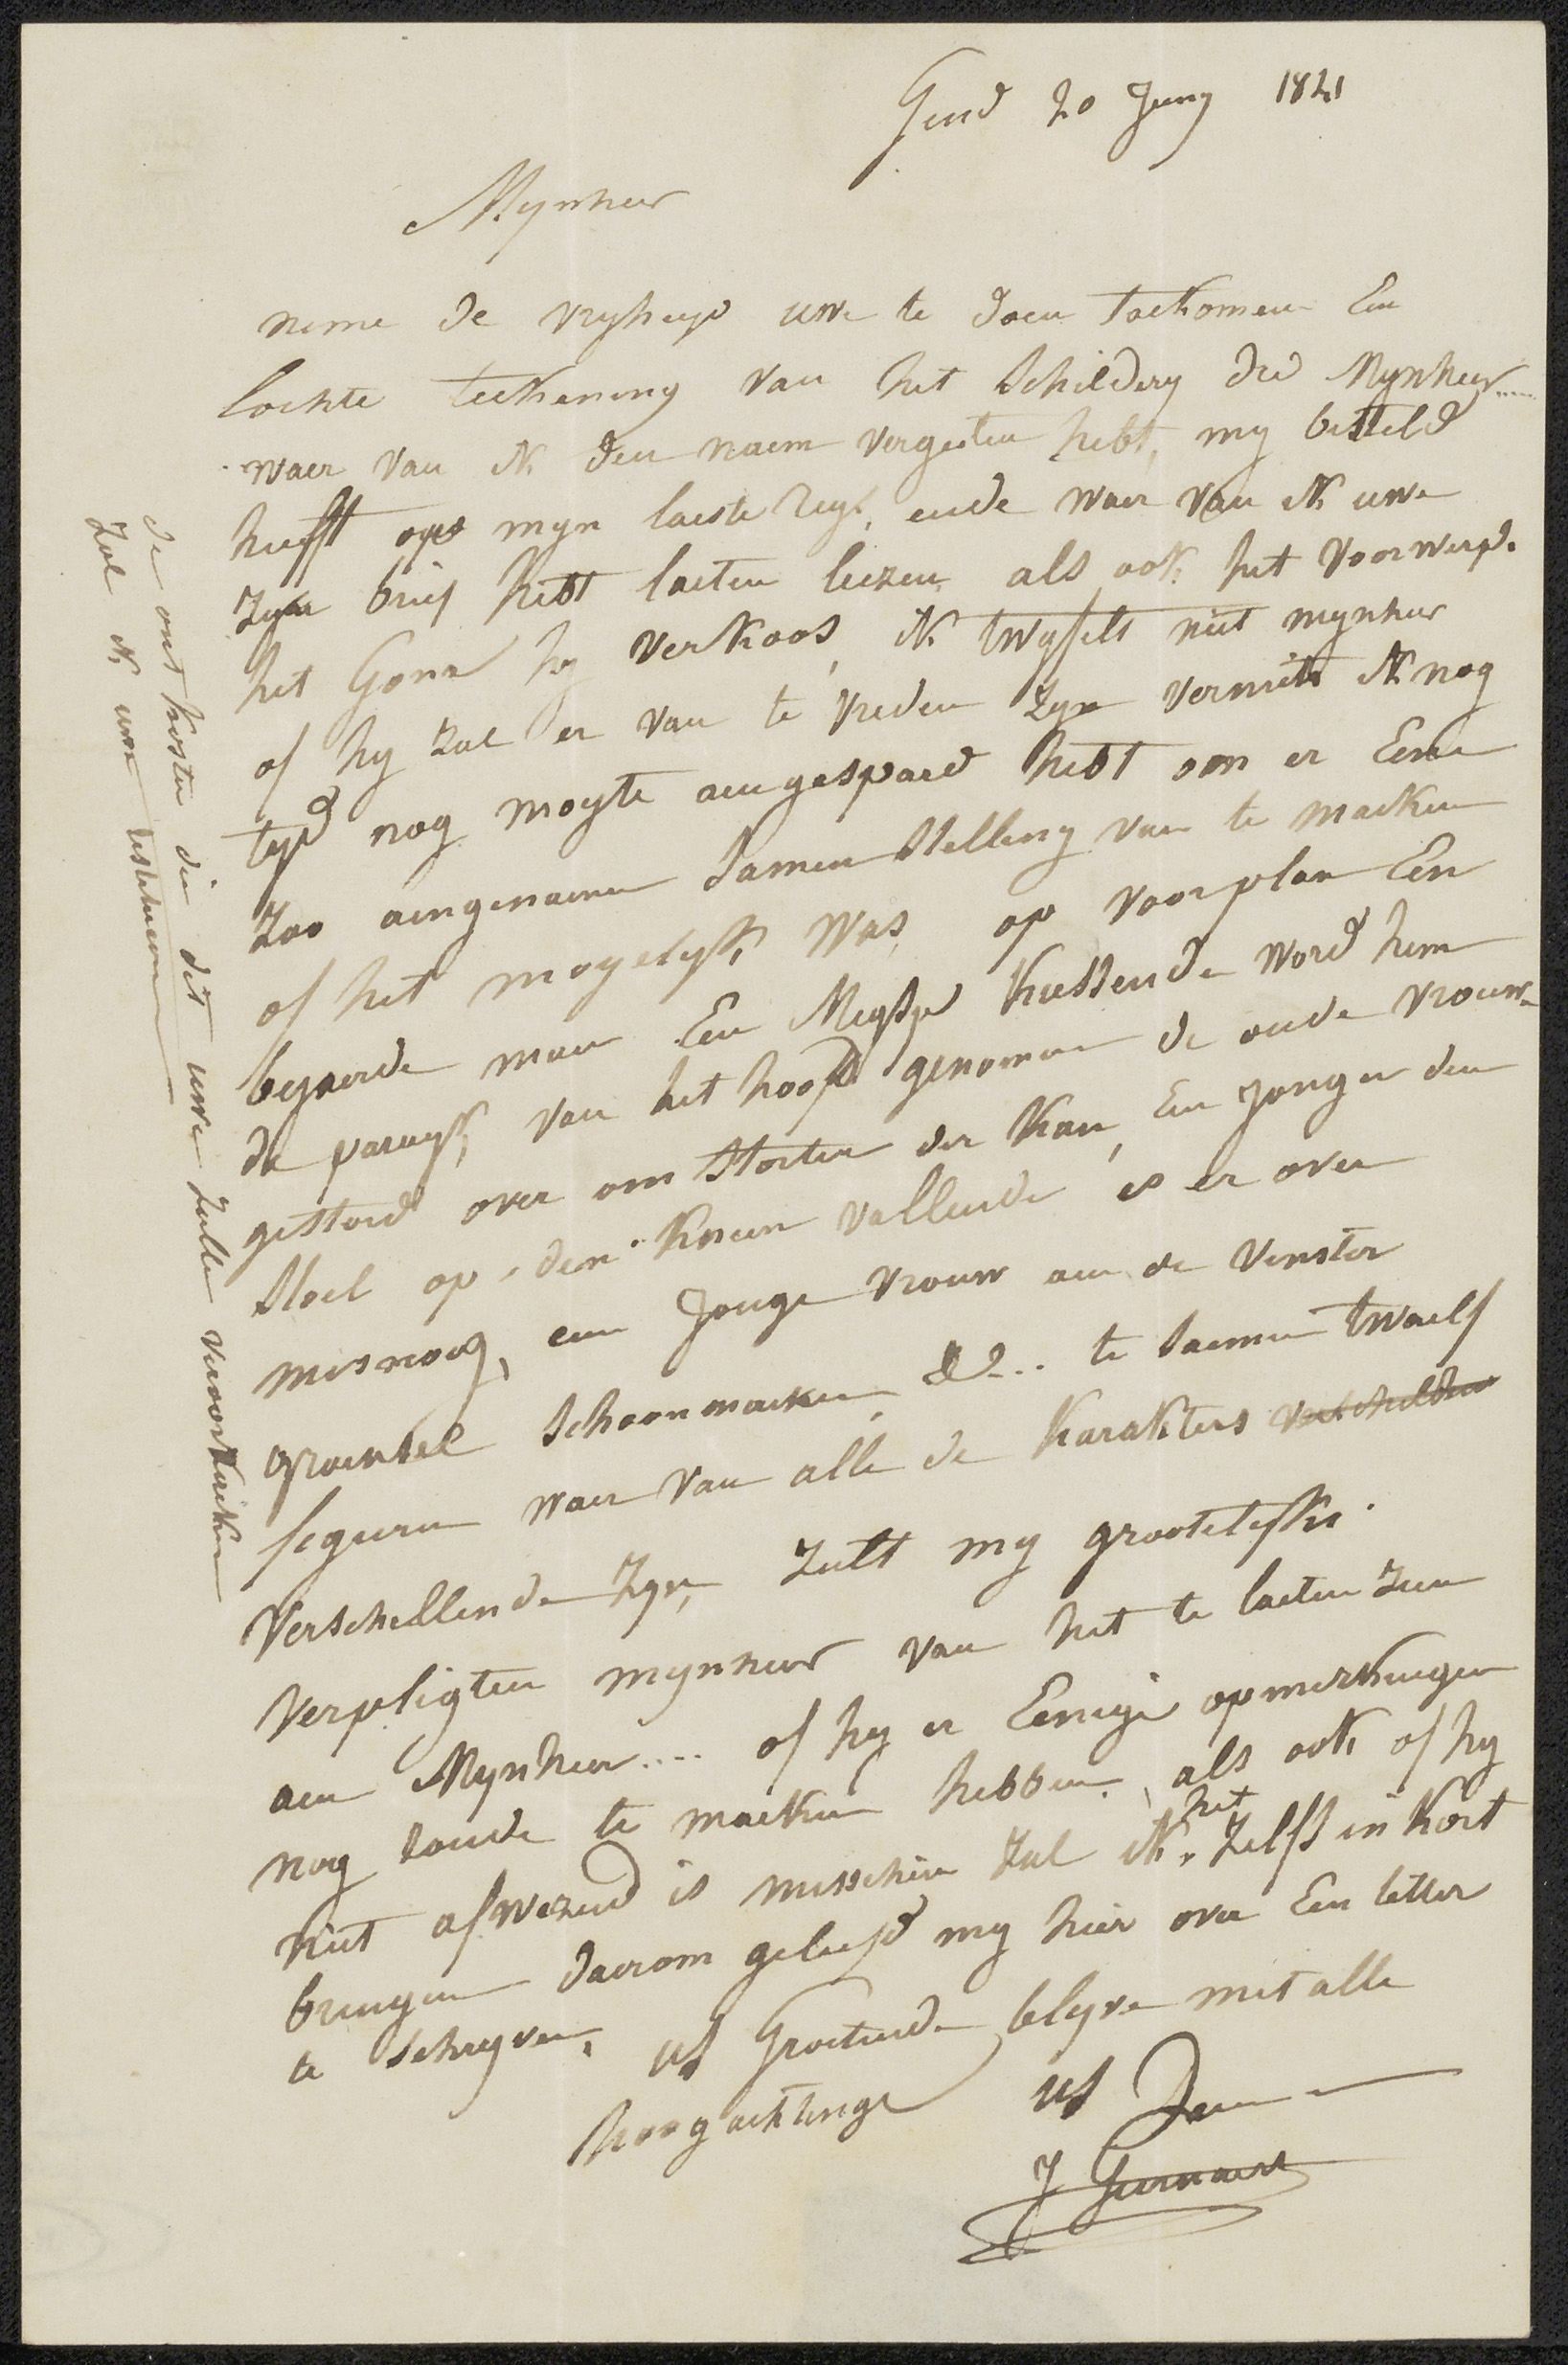 Gend 20 Juny 1821
Mynheer
neme de vryheyd uwe te doen toekomen Een
lochte teekening van het schildery die Mynheer....
waer van ik den naem vergeeten hebt, my besteld
heeft op myn laeste reys, ende waer van ik uwe
zyn brief hebt laeten leezen, als ook het voorwerp.
het Gone hy verkoos, ik twyfelt niet mynheer
of hy zal er van te vreden zyn vermits ik nog
tyd nog moyte aengespaerd hebt om er Eene
zoo aengenaeme samenstelling van te maeken
of het mogelyk was, op voorplan Een
bejaerde man Een Mysje kussende word hem
de paruyk van het hoofd genomen de oude vrouw
gestoord over om storten der kan, Een jongen den
stoel op den kneun vallende is er over
misnoeg, een Jonge vrouw aen de venster
groensel schoonmaeken, &... te saemen twaelf
feguren waer van alle de karakters verschillen
verschellende zyn, zult my grootelyks
verpligten mynheer van het te laeten zien
aen Mynheer.... of hy er Eenige opmerkingen
nog soude te maeken hebben, als ook of hy
niet afwezend is misschien zal ik het zelfs in kort
brengen daerom geliefd my hier over Een letter
te schryven, us Groetende blyve met alle
hoogachtinge us Dien
J Geirnaert
de onkosten die dit uwe zulle veroorzaeken
zal ik uwe